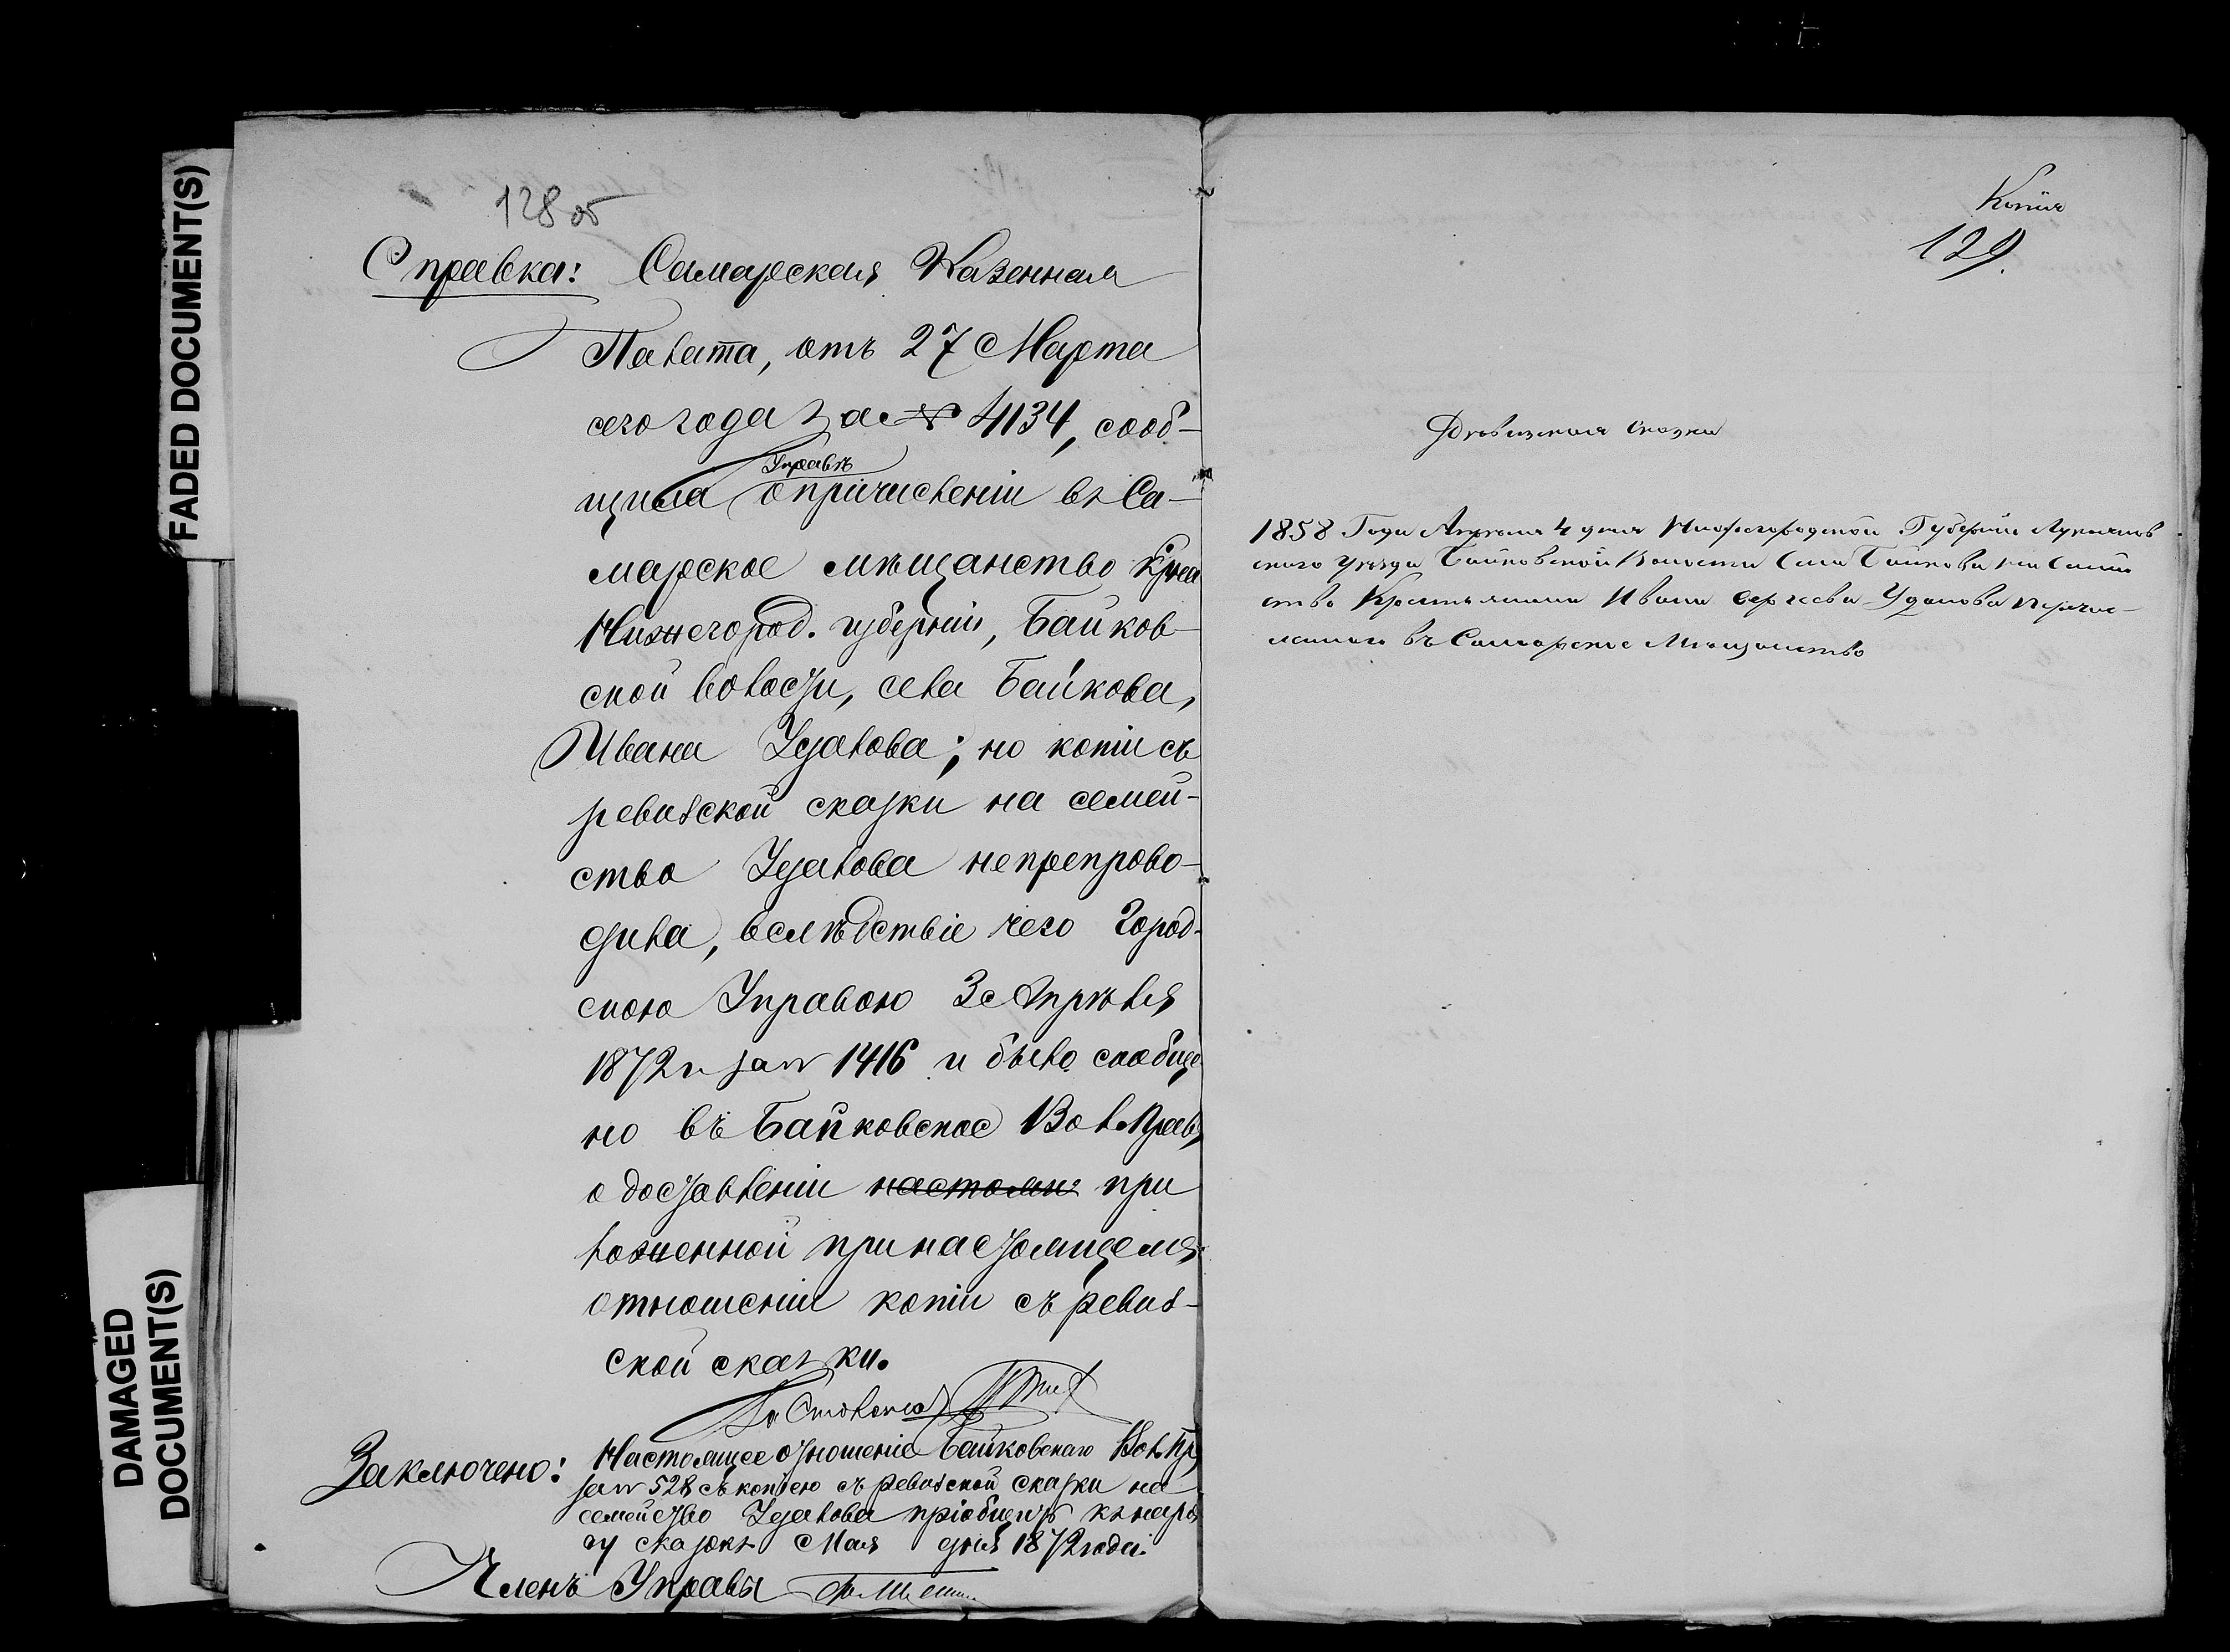 FADED DOCUMENT(S)
DAMAGED
DOCUMENT(S)
128 об
Справка: Самарская Казенная
Палата, отъ 27 Марта
сего года за № 4134, сооб-
Управѣ
щила о причисленіи въ Са-
марское мѣщанство Кр-на
Нижегород. губерніи, Байков-
ской волости, села Байкова,
Ивана Удалова; но копіи съ
ревизской сказки на семей-
ство Удалова не препрово-
дила, вслѣдствіе чего Город-
скою Управою 3 Апрѣля
1872 г. за № 1416 и было сообще
но въ Байковское Вол. Прав.
о доставленіи настоящ при
ложенной при настоящемъ
отношеніи копіи съ ревиз-
ской сказки.
Заключено: Настоящее отношеніе Байковскаго Вол. Пр.
за № 528 съ копіею съ ревизской сказки на
семейство Удалова пріобщить къ наря
ду сказокъ Мая дня 1872 года.
Членъ Управы
Копія
129.
Ревизская сказка
1858 Года Апреля 4 дня Нижегородской Губерніи Лукоянов
ского уезда Байковской Волости Села Байкова на Семей
ство Крестьянина Ивана Сергеева Удалова Перечис-
леннаго въ Самарское Мещанство